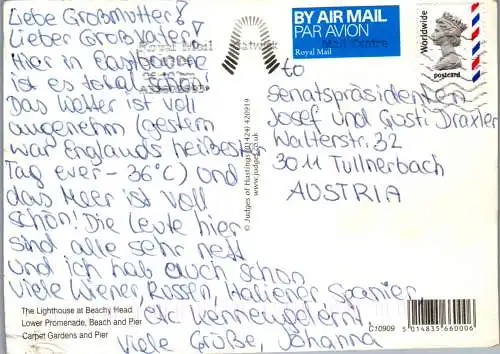 Liebe Großmutter!
Lieber Großvater!
Hier in Eastbourne
ist es total schön!
Das Wetter ist voll
angenehm (gestern
war Englands heißester
Tag ever - 36°C) und
das Meer ist voll
schön! Die Leute hier
sind alle sehr nett
und ich hab auch schon
viele Wiener, Russen, Italiener Spanier
etc kennengelernt
Viele Grüße, Johanna
The Lighthouse at Beachy Head
Lower Promenade, Beach and Pier
Carpet Gardens and Pier
Royal Mail
© Judges of Hastings (01424) 420919
www.judges.co.uk
BY AIR MAIL
PAR AVION
Royal Mail
Mail Centre
Worldwide
postcard
to
Senatspräsidenten
Josef und Gusti Draxler
Walterstr. 32
3011 Tullnerbach
AUSTRIA
C10909
5 014835 660006